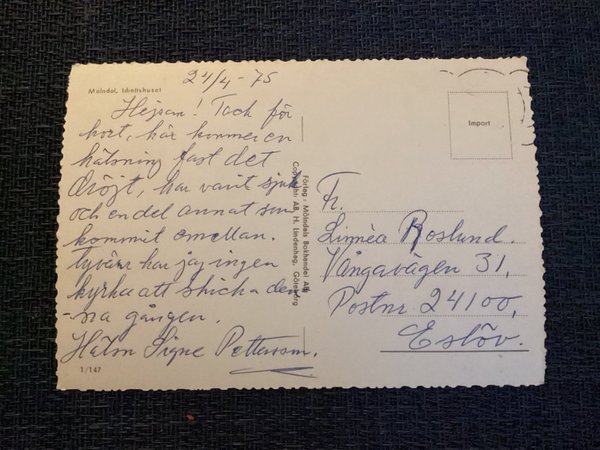 24/4-75
Mölndal, Idrottshuset
Hejsan! Tack för
kort, här kommer en
hälsning fast det
dröjt, har varit sjuk
och en del annat som
kommit emellan.
tyvärr har jag ingen
kyrka att skicka den-
-na gången.
Hälsn Signe Pettersson.
1/147
Förlag: Mölndals Bokhandel AB
Copyright: AB. H. Lindenhag, Göteborg
Import
Fr.
Linnèa Roslund.
Vångavägen 31,
Postnr 24100,
Eslöv.